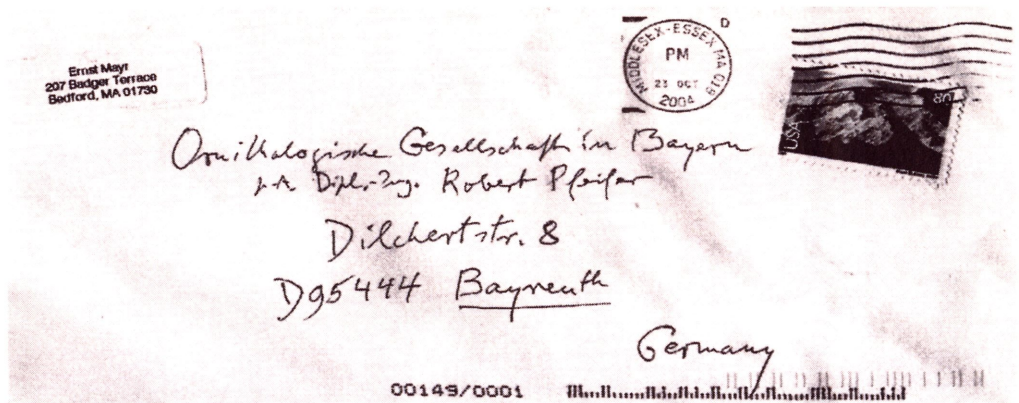 Ernst Mayr
207 Badger Terrace
Bedford, MA 01730
D
MIDDLESEX-ESSEX MA 018
PM
23 OCT
2004
USA
Ornithologische Gesellschaft in Bayern
Dipl.-Ing. Robert Pfeifer
Dilchertstr. 8
D95444 Bayreuth
Germany
00149/0001